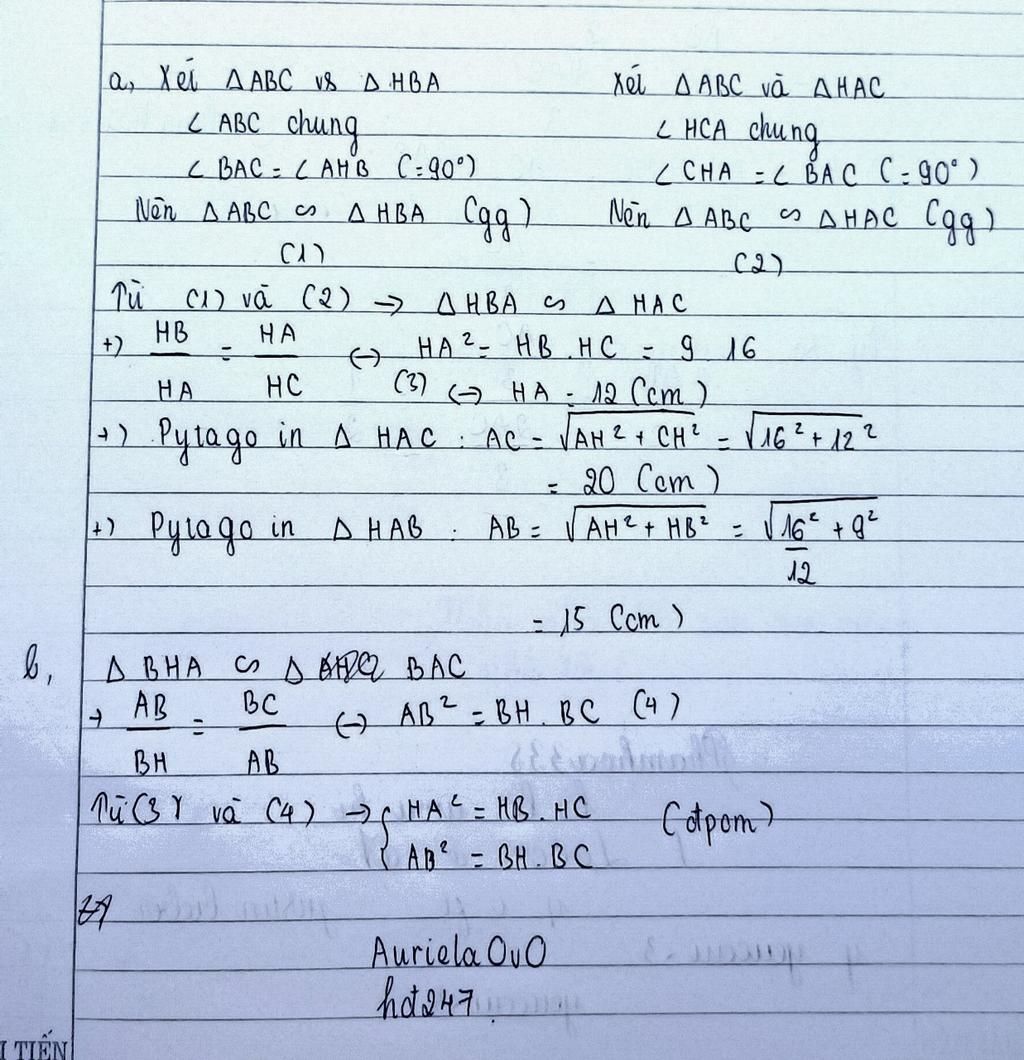 a, Xét △ABC vs △HBA
∠ABC chung
∠BAC = ∠AHB (=90°)
Nên △ABC ∽ △HBA (gg)
(1)
Xét △ABC và △HAC
∠HCA chung
∠CHA = ∠BAC (=90°)
Nên △ABC ∽ △HAC (gg)
(2)
Từ (1) và (2) → △HBA ∽ △HAC
+) HB/HA = HA/HC (3) ↔ HA² = HB.HC = 9 16
↔ HA = 12 (cm)
+) Pytago in △HAC : AC = √(AH² + CH²) = √(16² + 12²)
= 20 (cm)
+) Pytago in △HAB : AB = √(AH² + HB²) = √(16² + 9²)
12
= 15 (cm)
b, △BHA ∽ △ BAC
→ AB/BH = BC/AB ↔ AB² = BH.BC (4)
Từ (3) và (4) → { HA² = HB.HC (đpcm)
AB² = BH.BC
Auriela OvO
hđ247
I TIẾN